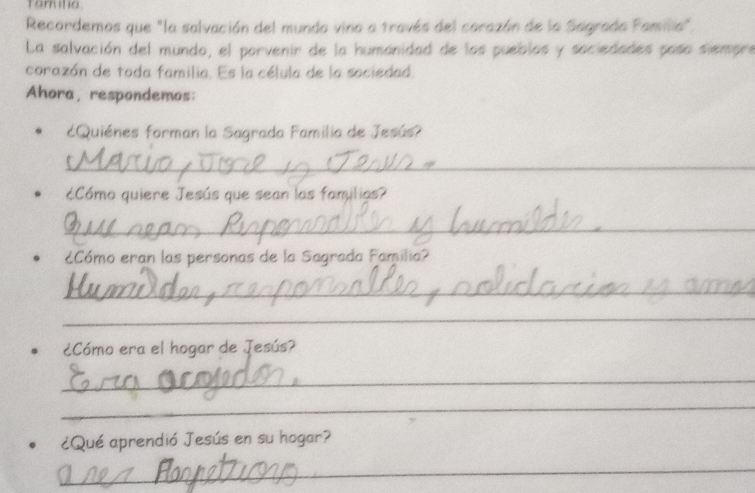 Familia.
Recordemos que "la salvación del mundo vino a través del corazón de la Sagrada Familia".
La salvación del mundo, el porvenir de la humanidad de los pueblos y sociedades pasa siempre
corazón de toda familia. Es la célula de la sociedad.
Ahora, respondemos:
• ¿Quiénes forman la Sagrada Familia de Jesús?
Maria, Jose y Jesus.
• ¿Cómo quiere Jesús que sean las familias?
Que sean Responsables y humildes.
• ¿Cómo eran las personas de la Sagrada Familia?
Humildes, responsables, solidarios y amos
• ¿Cómo era el hogar de Jesús?
Era acojedor.
• ¿Qué aprendió Jesús en su hogar?
a ser Respetuoso